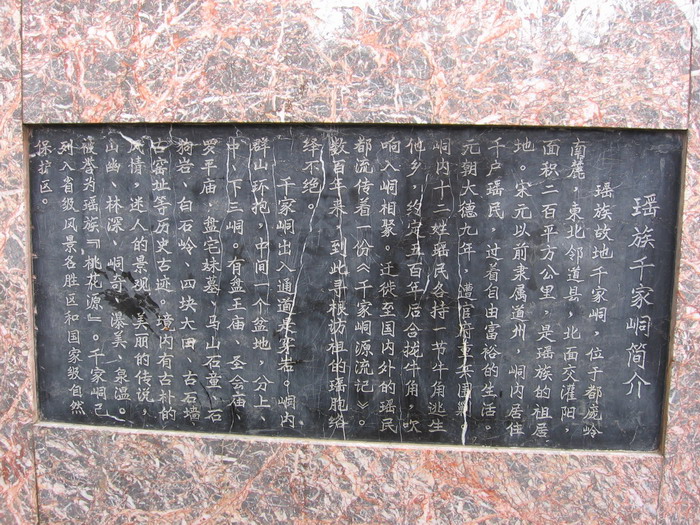 瑶族千家峒简介
瑶族故地千家峒，位于都庞岭
南麓，东北邻道县，北面交灌阳，
面积二百平方公里，是瑶族的祖居
地。宋元以前隶属道州，峒内居住
千户瑶民，过着自由富裕的生活。
元朝大德九年，遭官府重兵围剿。
峒内十二姓瑶民各持一节牛角逃生
他乡，约定五百年后合拢牛角，吹
响入峒相聚。迁徙至国内外的瑶民
都流传着一份《千家峒源流记》。
数百年来，到此寻根访祖的瑶胞络
绎不绝。
千家峒出入通道是穿岩。峒内
群山环抱，中间一个盆地，分上
中、下三峒。有盘王庙、圣会庙
罗平庙、盘宅妹墓、马山石童、石
狗岩、白石岭、四块大田、古石墙
古窑址等历史古迹。境内有古朴的
情，迷人的景观，美丽的传说，
山幽、林深、峒奇、瀑美、泉温。
被誉为瑶族『桃花源』。千家峒已
列入省级风景名胜区和国家级自然
保护区。